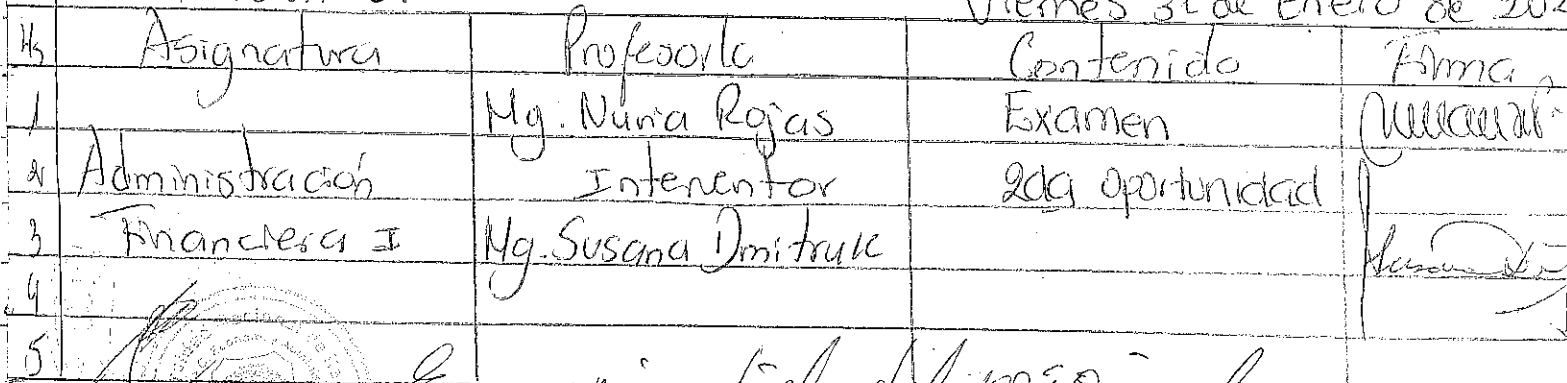 Viernes 31 de Enero de 202
Hs Asignatura Profesor/a Contenido Firma
1 Mg. Nuria Rojas Examen
2 Administración Intenentor 2da oportunidad
3 Financiera I Mg. Susana Dmitruk
4
5